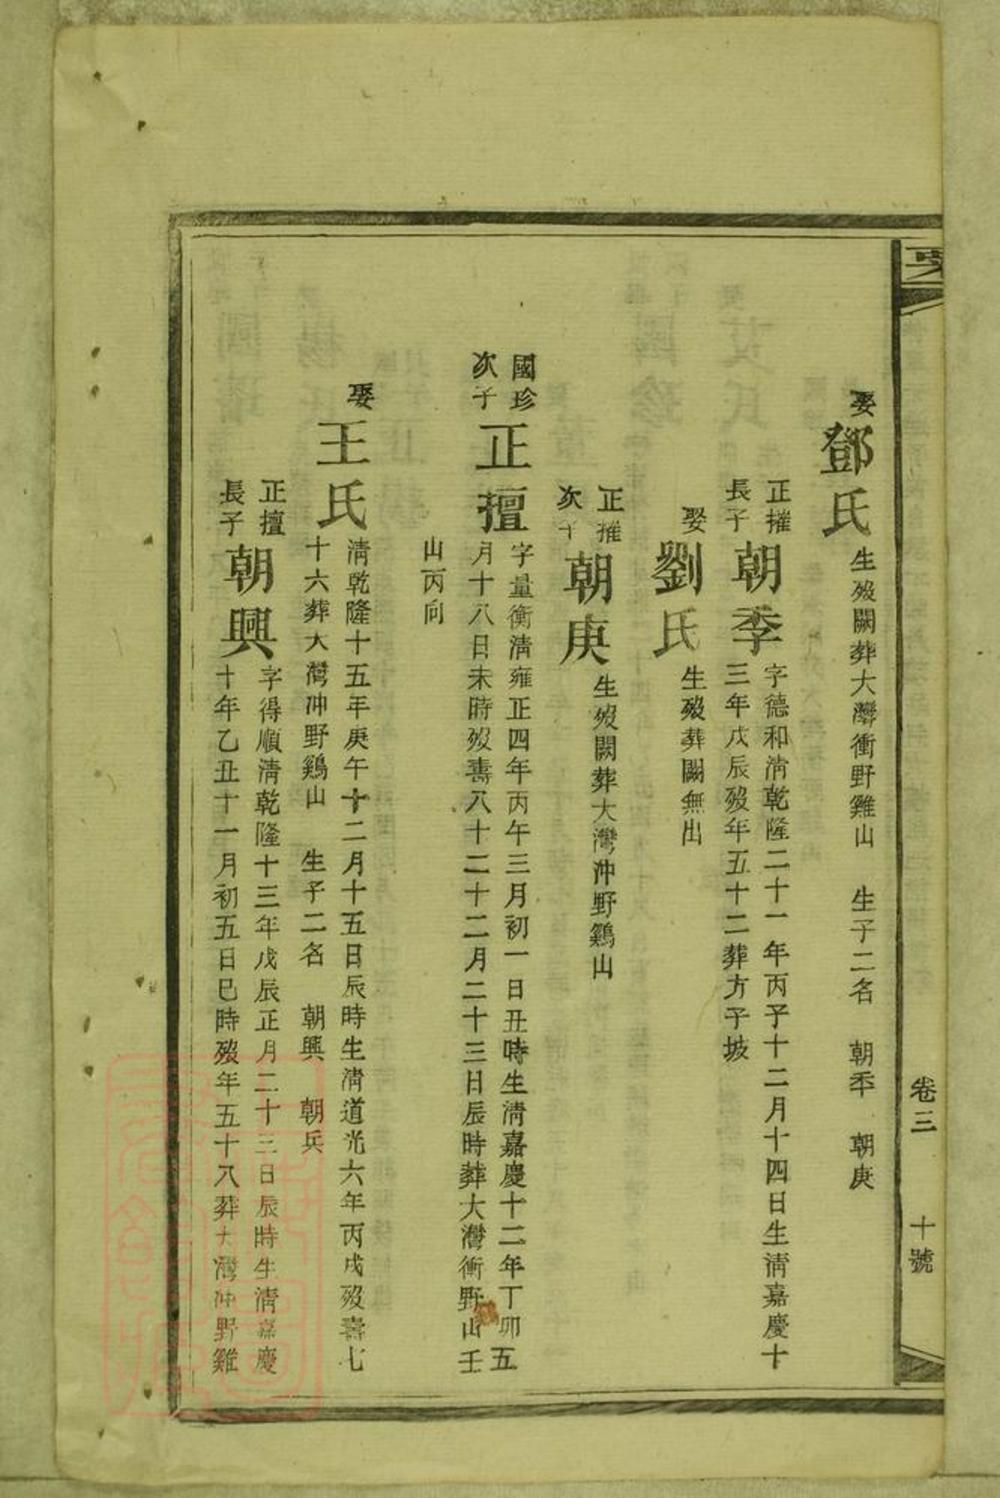 卷三
十號
娶鄧氏生歿闕葬大灣衝野雞山 生子二名 朝季 朝庚
正摧長子朝季字德和清乾隆二十一年丙子十二月十四日生清嘉慶十
三年戊辰歿年五十二葬方子坡
娶劉氏生歿葬闕無出
正摧次子朝庚生歿闕葬大灣沖野鷄山
國珍次子正擅字量衡清雍正四年丙午三月初一日丑時生清嘉慶十二年丁卯五
月十八日未時歿壽八十二十二月二十三日辰時葬大灣衝野鷄山壬
山丙向
娶王氏清乾隆十五年庚午十二月十五日辰時生清道光六年丙戌歿壽七
十六葬大灣沖野鷄山 生子二名 朝興 朝兵
正擅長子朝興字得順清乾隆十三年戊辰正月二十三日辰時生清嘉慶
十年乙丑十一月初五日巳時歿年五十八葬大灣沖野雞